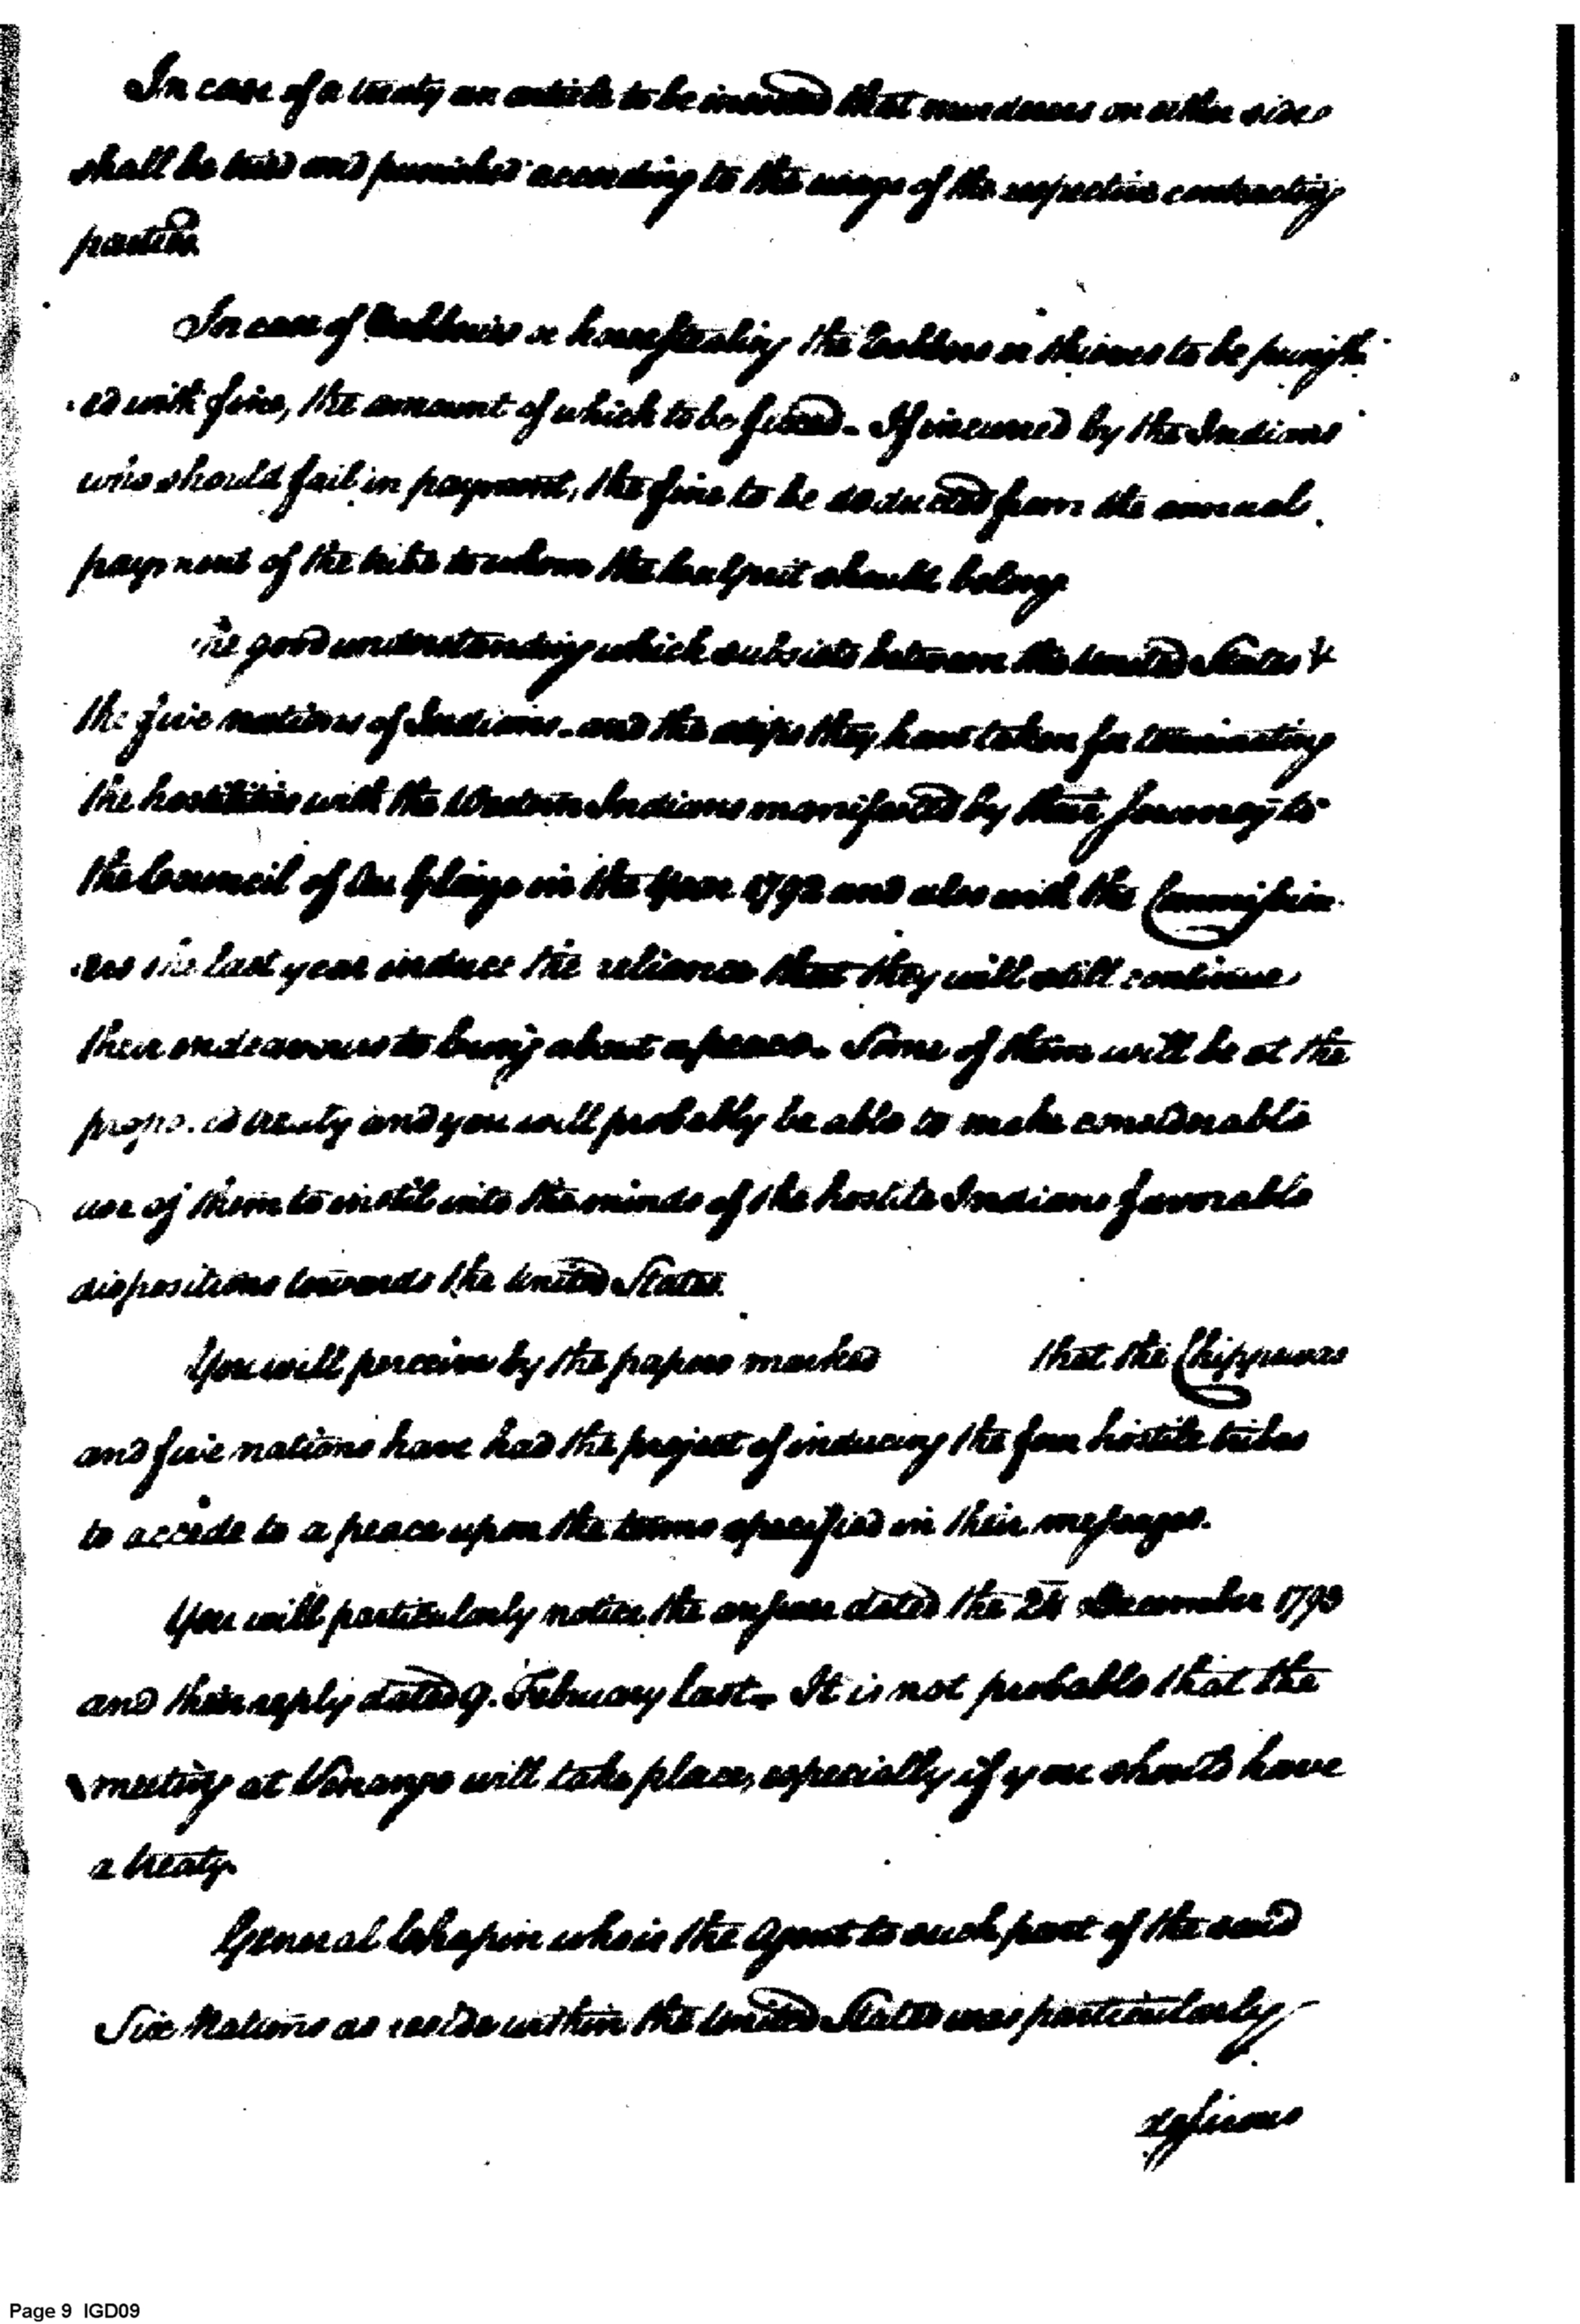 In case of a treaty an article to be inserted that murderers on either side
shall be tried and punished according to the usage of the respective contracting
parties.
In case of Robberies or horse stealing the Robbers or thieves to be punish
ed with fine, the amount of which to be fixed. If incurred by the Indians
who should fail in payment, the fine to be deducted from the annual
payment of the tribe to whom the Culprit should belong
The good understanding which subsists between the United States &
the five nations of Indians. and the steps they have taken for terminating
the hostilities with the Western Indians manifested by their journey to
the Council of Au Glaize in the Year 1792 and also with the Commission
ers the last year induce the reliance that they will still continue
their endeavours to bring about a peace. Some of them will be at the
proposed treaty and you will probably be able to make considerable
use of them to instil into the minds of the hostile Indians favorable
dispositions towards the United States.
You will perceive by the papers marked that the Chippewas
and five nations have had the project of inducing the four hostile tribes
to accede to a peace upon the terms specified in their messages.
You will particularly notice the answer dated the 24 December 1793
and their reply dated 9. February last. It is not probable that the
meeting at Venango will take place, especially if you should have
a treaty.
General Chapin who is the Agent to such part of the said
Six Nations as reside within the United States was particularly
desirous
Page 9 IGD09